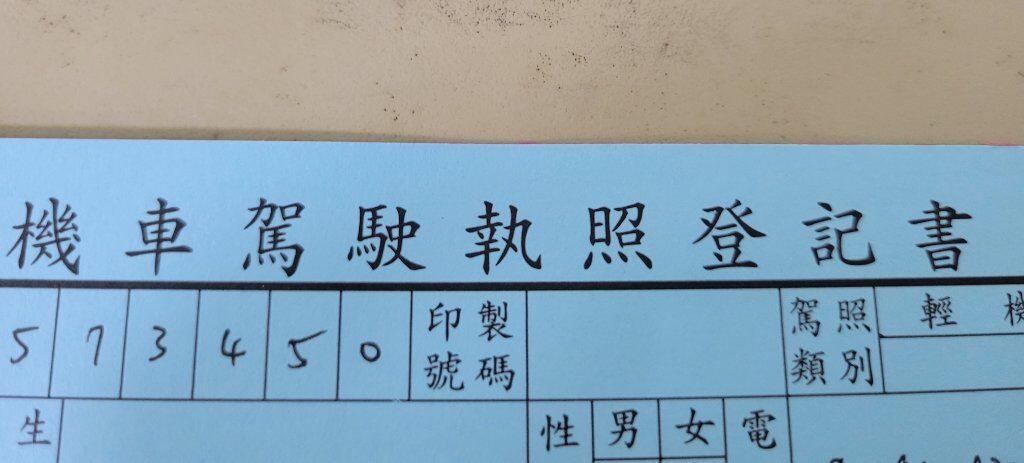 機車駕駛執照登記書
5 7 3 4 5 0 印製號碼 駕照類別 輕機
生 性 男 女 電